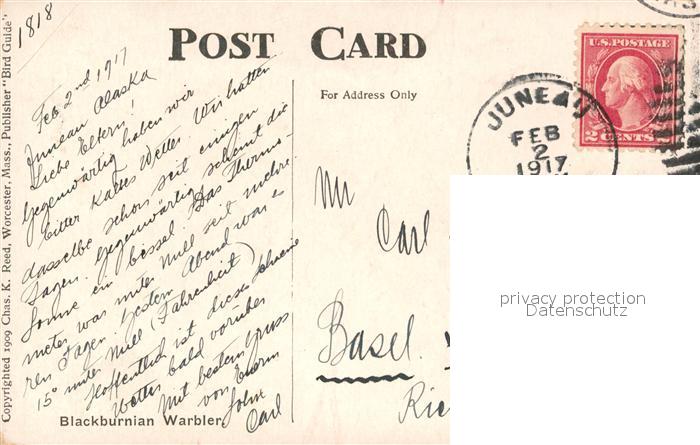 1818
POST CARD
For Address Only
Copyrighted 1909 Chas. K. Reed, Worcester, Mass., Publisher "Bird Guide"
Feb. 2nd 1917
Juneau Alaska
Liebe Eltern!
Gegenwärtig haben wir
bitter kaltes Wetter. Wir hatten
dasselbe schon seit einigen
Tagen. Gegenwärtig scheint die
Sonne ein bessel. Das Thermo-
meter was unter Null seit mehre-
ren Tagen. Gestern Abend war es
15° unter Null (Fahrenheit)
Hoffentlich ist dieses schöne
Wetter bald vorüber
Mit bestem Gruss
von Euerm
Sohn
Carl
Blackburnian Warbler
U.S. POSTAGE
2 CENTS 2
JUNEAU
FEB
2
1917
Mr
Carl
Basel.
privacy protection
Datenschutz